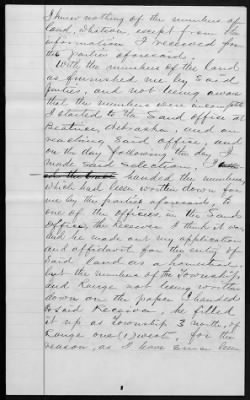 I knew nothing of the numbers of
land, whatson, except from the
information I received from
the parties aforesaid.
With the numbers of the land
as furnished me by said
parties, and not being aware
that the numbers were incomplete
I started to the Land office at
Beatrice, Nebraska, and on
reaching said office and
on the day following the day I
made said selection I
handed the numbers,
which had been written down for
me by the parties aforesaid, to
one of the officers in the Land
office, the Receiver I think it was
and he made out my application
and affidavit for the entry of
said land as a homestead
but the numbers of the Township
and Range not being written
down on the paper I handed
to said Receiver, he filled
it up as Township 3 north, of
Range one (1) west, for the
reason, as I have since been